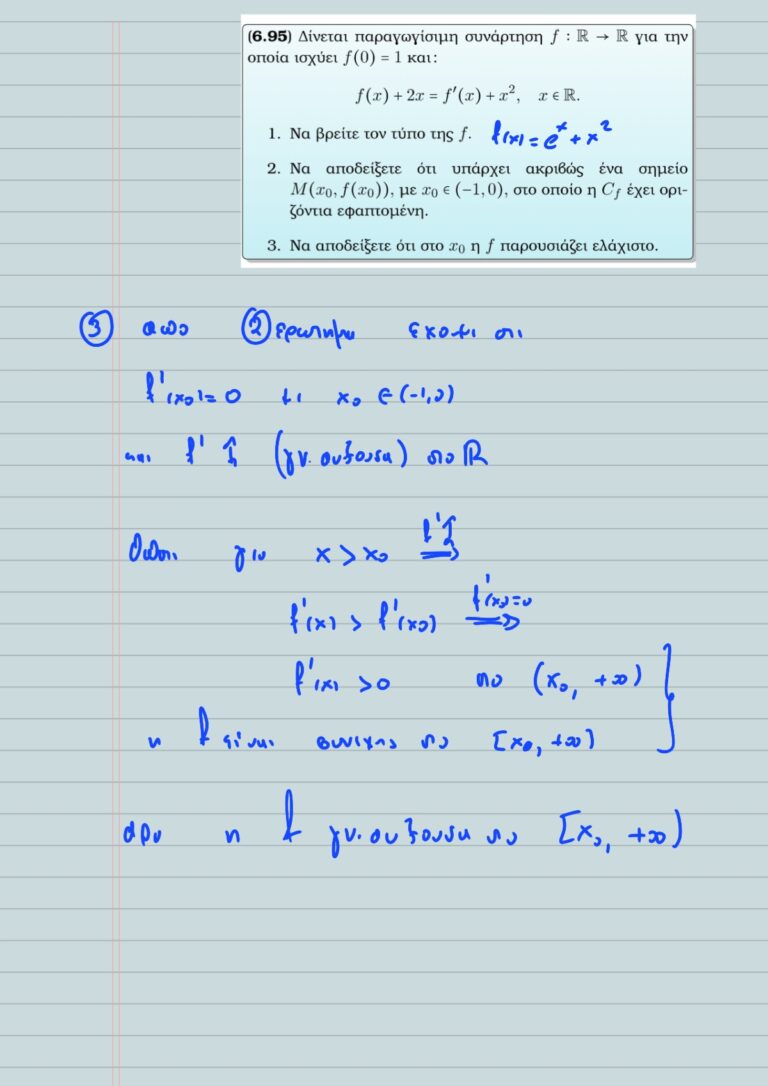 (6.95) Δίνεται παραγωγίσιμη συνάρτηση f : ℝ → ℝ για την
οποία ισχύει f(0) = 1 και:
f(x) + 2x = f′(x) + x², x ∈ ℝ.
1. Να βρείτε τον τύπο της f. f(x) = eˣ + x²
2. Να αποδείξετε ότι υπάρχει ακριβώς ένα σημείο
M(x₀, f(x₀)), με x₀ ∈ (−1, 0), στο οποίο η C_f έχει ορι-
ζόντια εφαπτομένη.
3. Να αποδείξετε ότι στο x₀ η f παρουσιάζει ελάχιστο.
③ απο ② ερωτημα εχουμε οτι
f'(x₀) = 0 με x₀ ∈ (-1,0)
και f' ↑ (γν. αυξουσα) στο ℝ
Οποτε για x > x₀ f'↑ ⟹
f'(x) > f'(x₀) f'(x₀)=0 ⟹
f'(x) > 0 στο (x₀, +∞)
η f ειναι συνεχης στο [x₀, +∞)
αρα η f γν. αυξουσα στο [x₀, +∞)